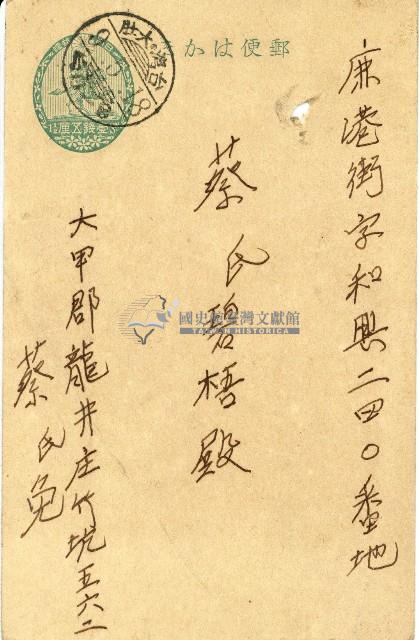 郵便はがき
鹿港街字和興二四〇番地
蔡氏碧梧殿
大甲郡龍井庄竹坑五六二
蔡氏免
國史館臺灣文獻館
TAIWAN HISTORICA
台灣・大肚